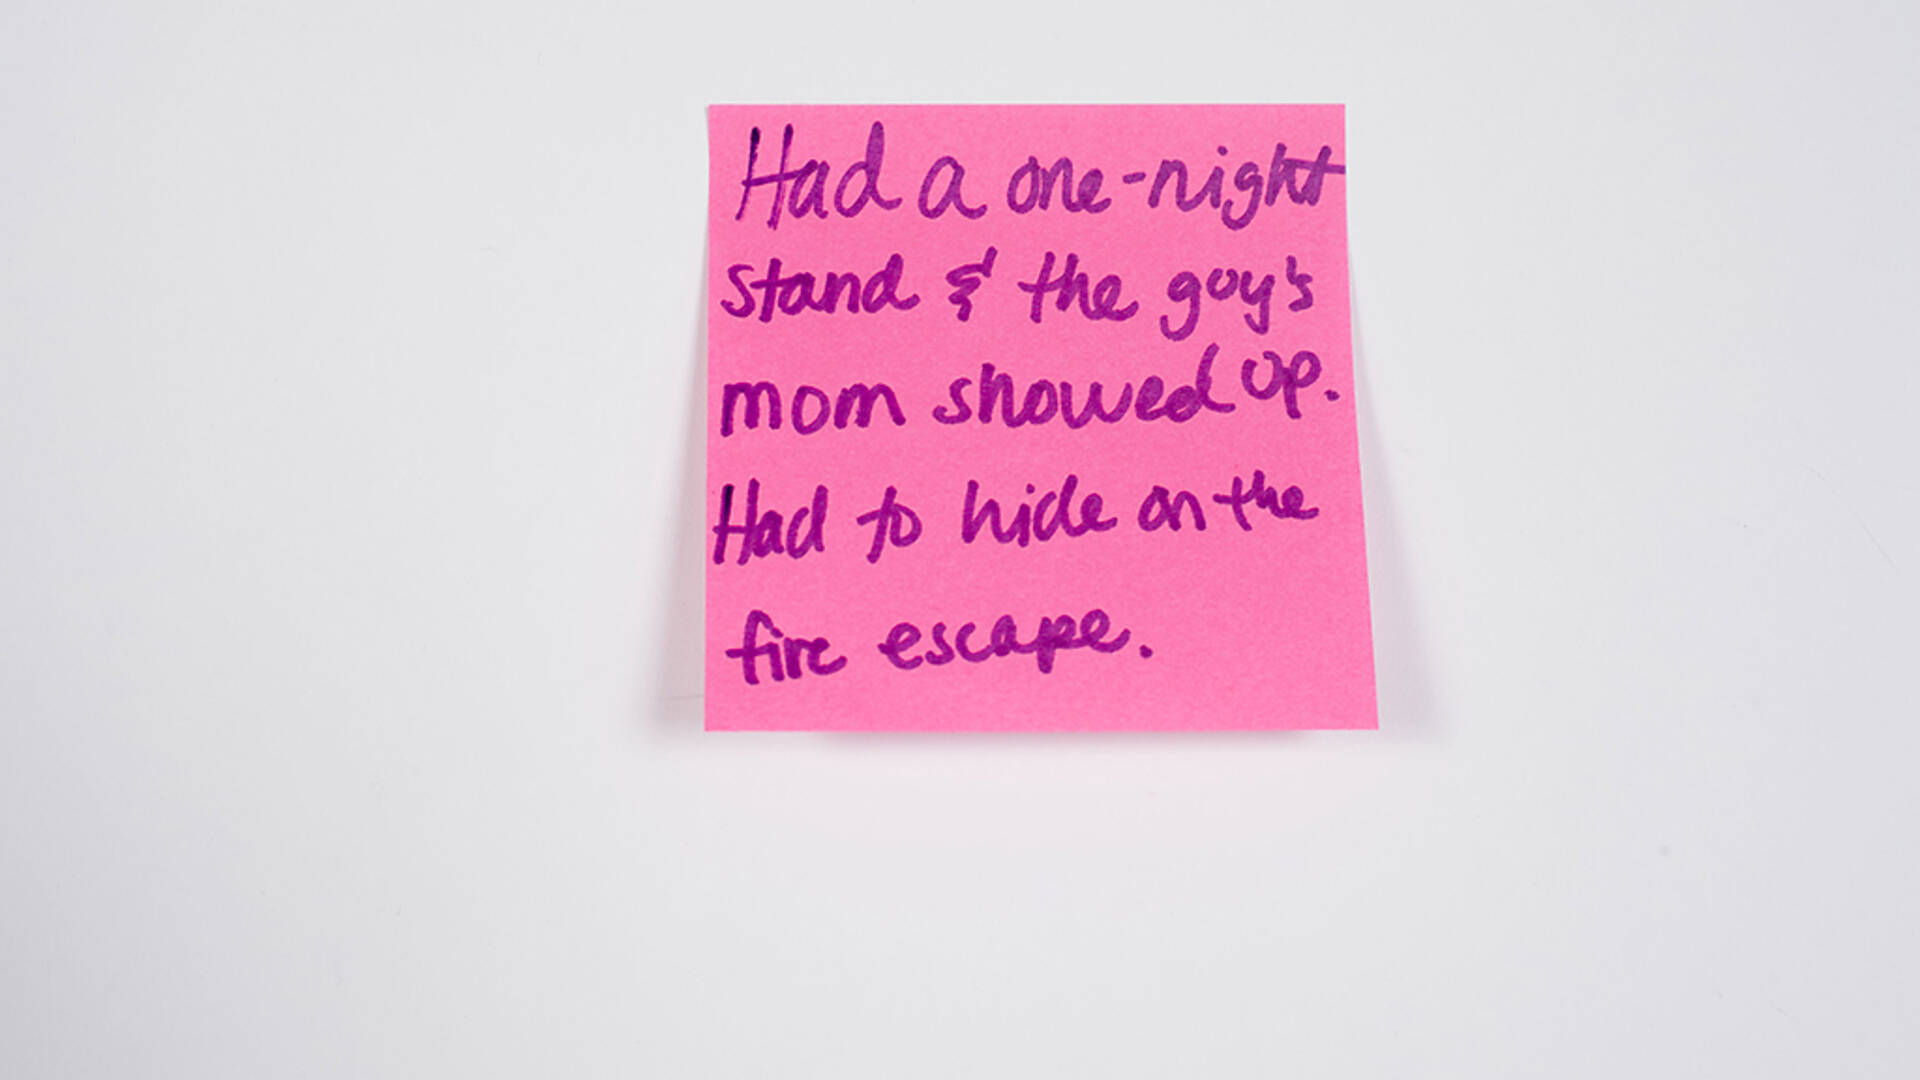 Had a one-night
stand & the guy's
mom showed up.
Had to hide on the
fire escape.